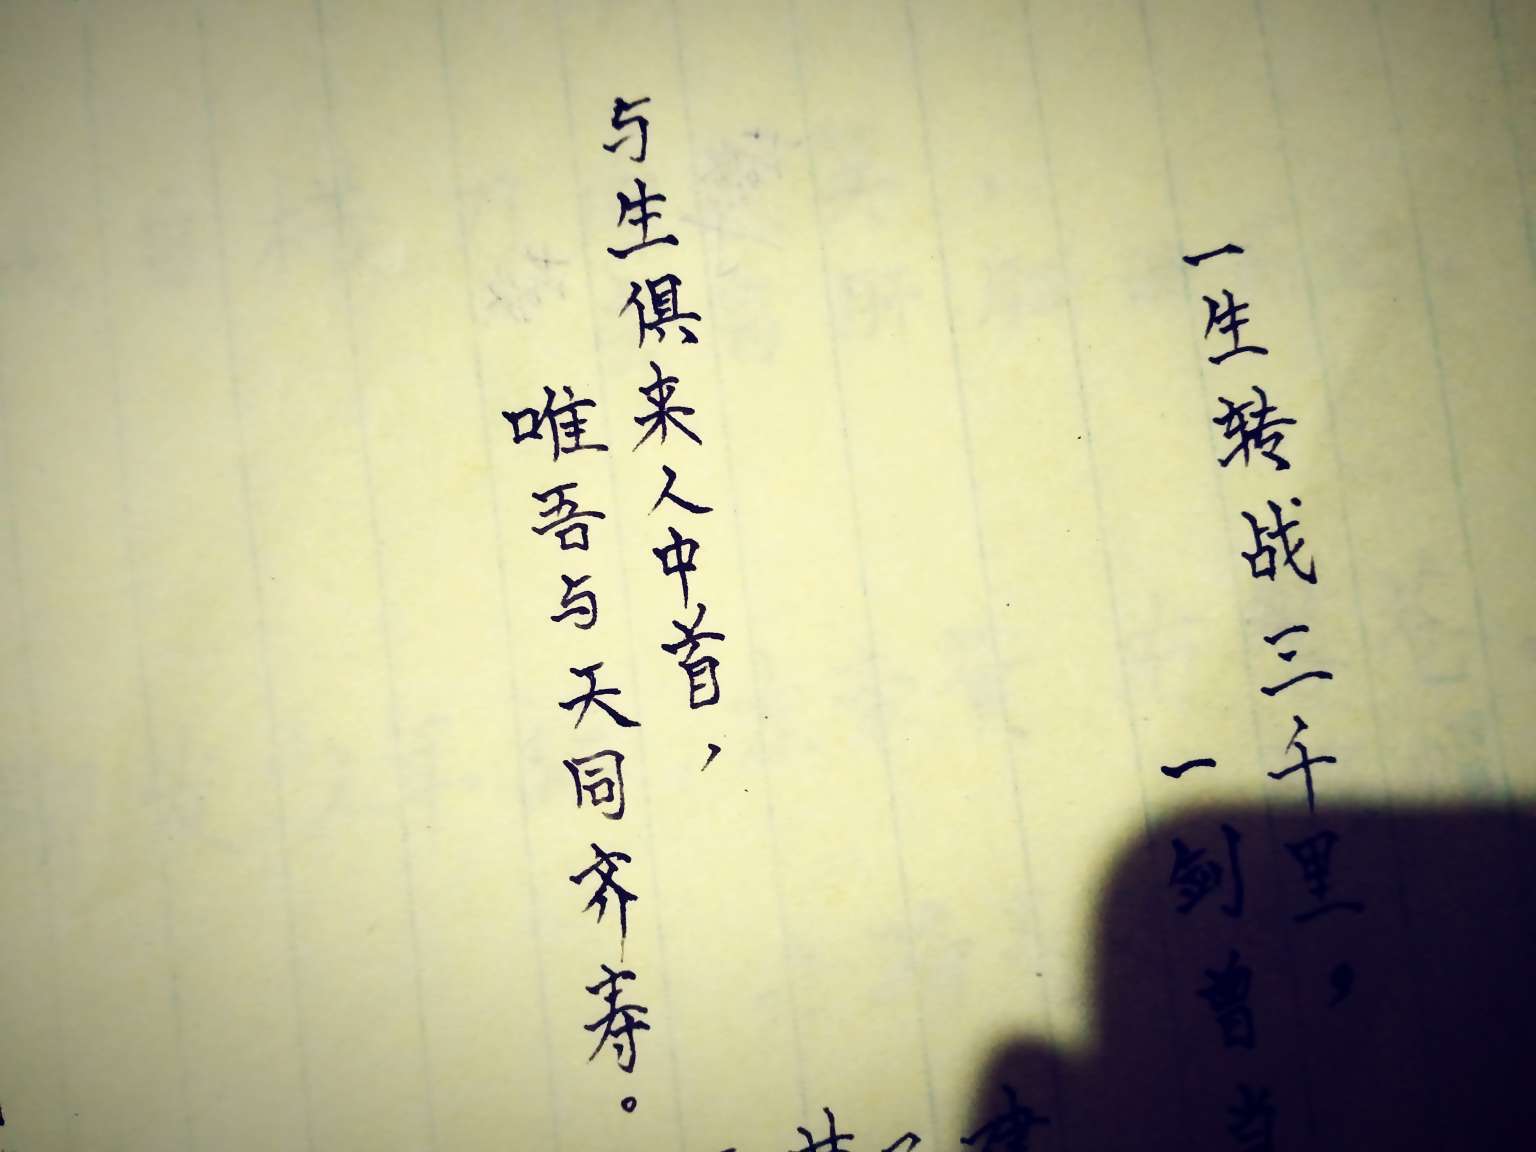 一生转战三千里，
一剑曾当
与生俱来人中首，
唯吾与天同齐寿。